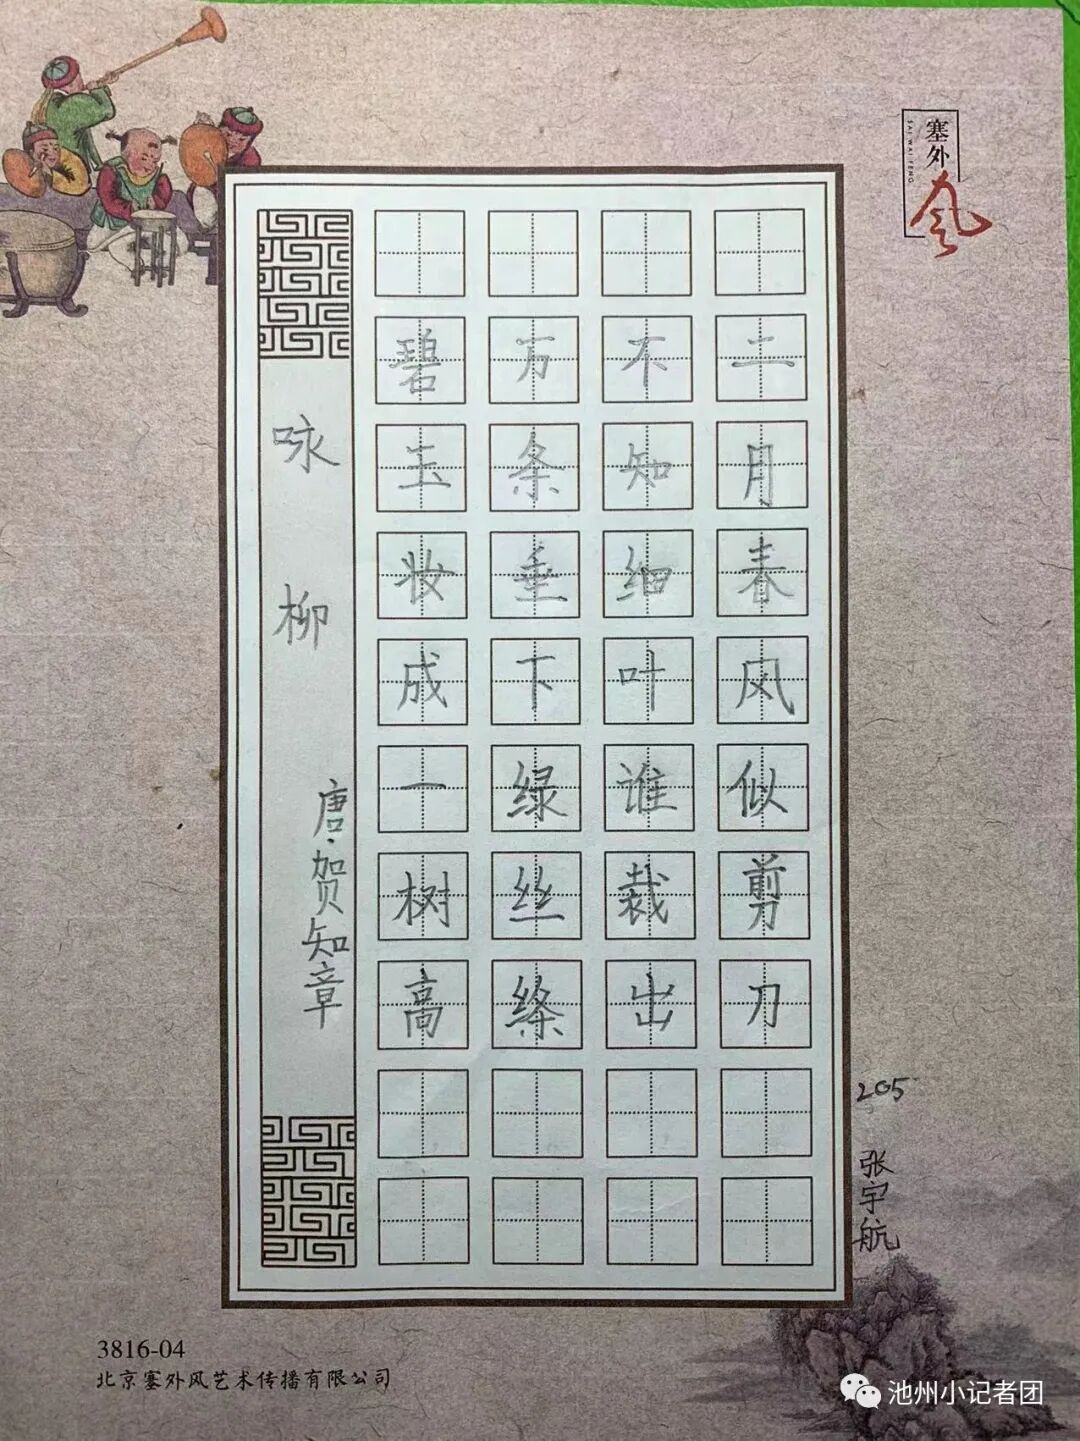 塞外风
SAI WAI FENG
咏柳
唐·贺知章
碧玉妆成一树高
万条垂下绿丝绦
不知细叶谁裁出
二月春风似剪刀
205
张宇航
3816-04
北京塞外风艺术传播有限公司
池州小记者团